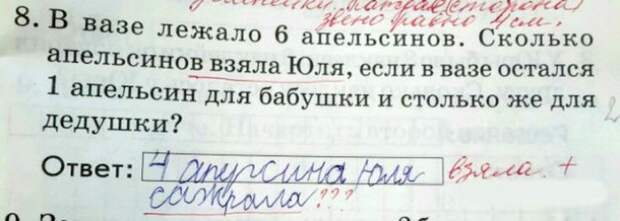 сторона)
звено равно 4 см.
8. В вазе лежало 6 апельсинов. Сколько
апельсинов взяла Юля, если в вазе остался
1 апельсин для бабушки и столько же для
дедушки?
Ответ: 4 апурсина Юля взяла. +
сажрала ???